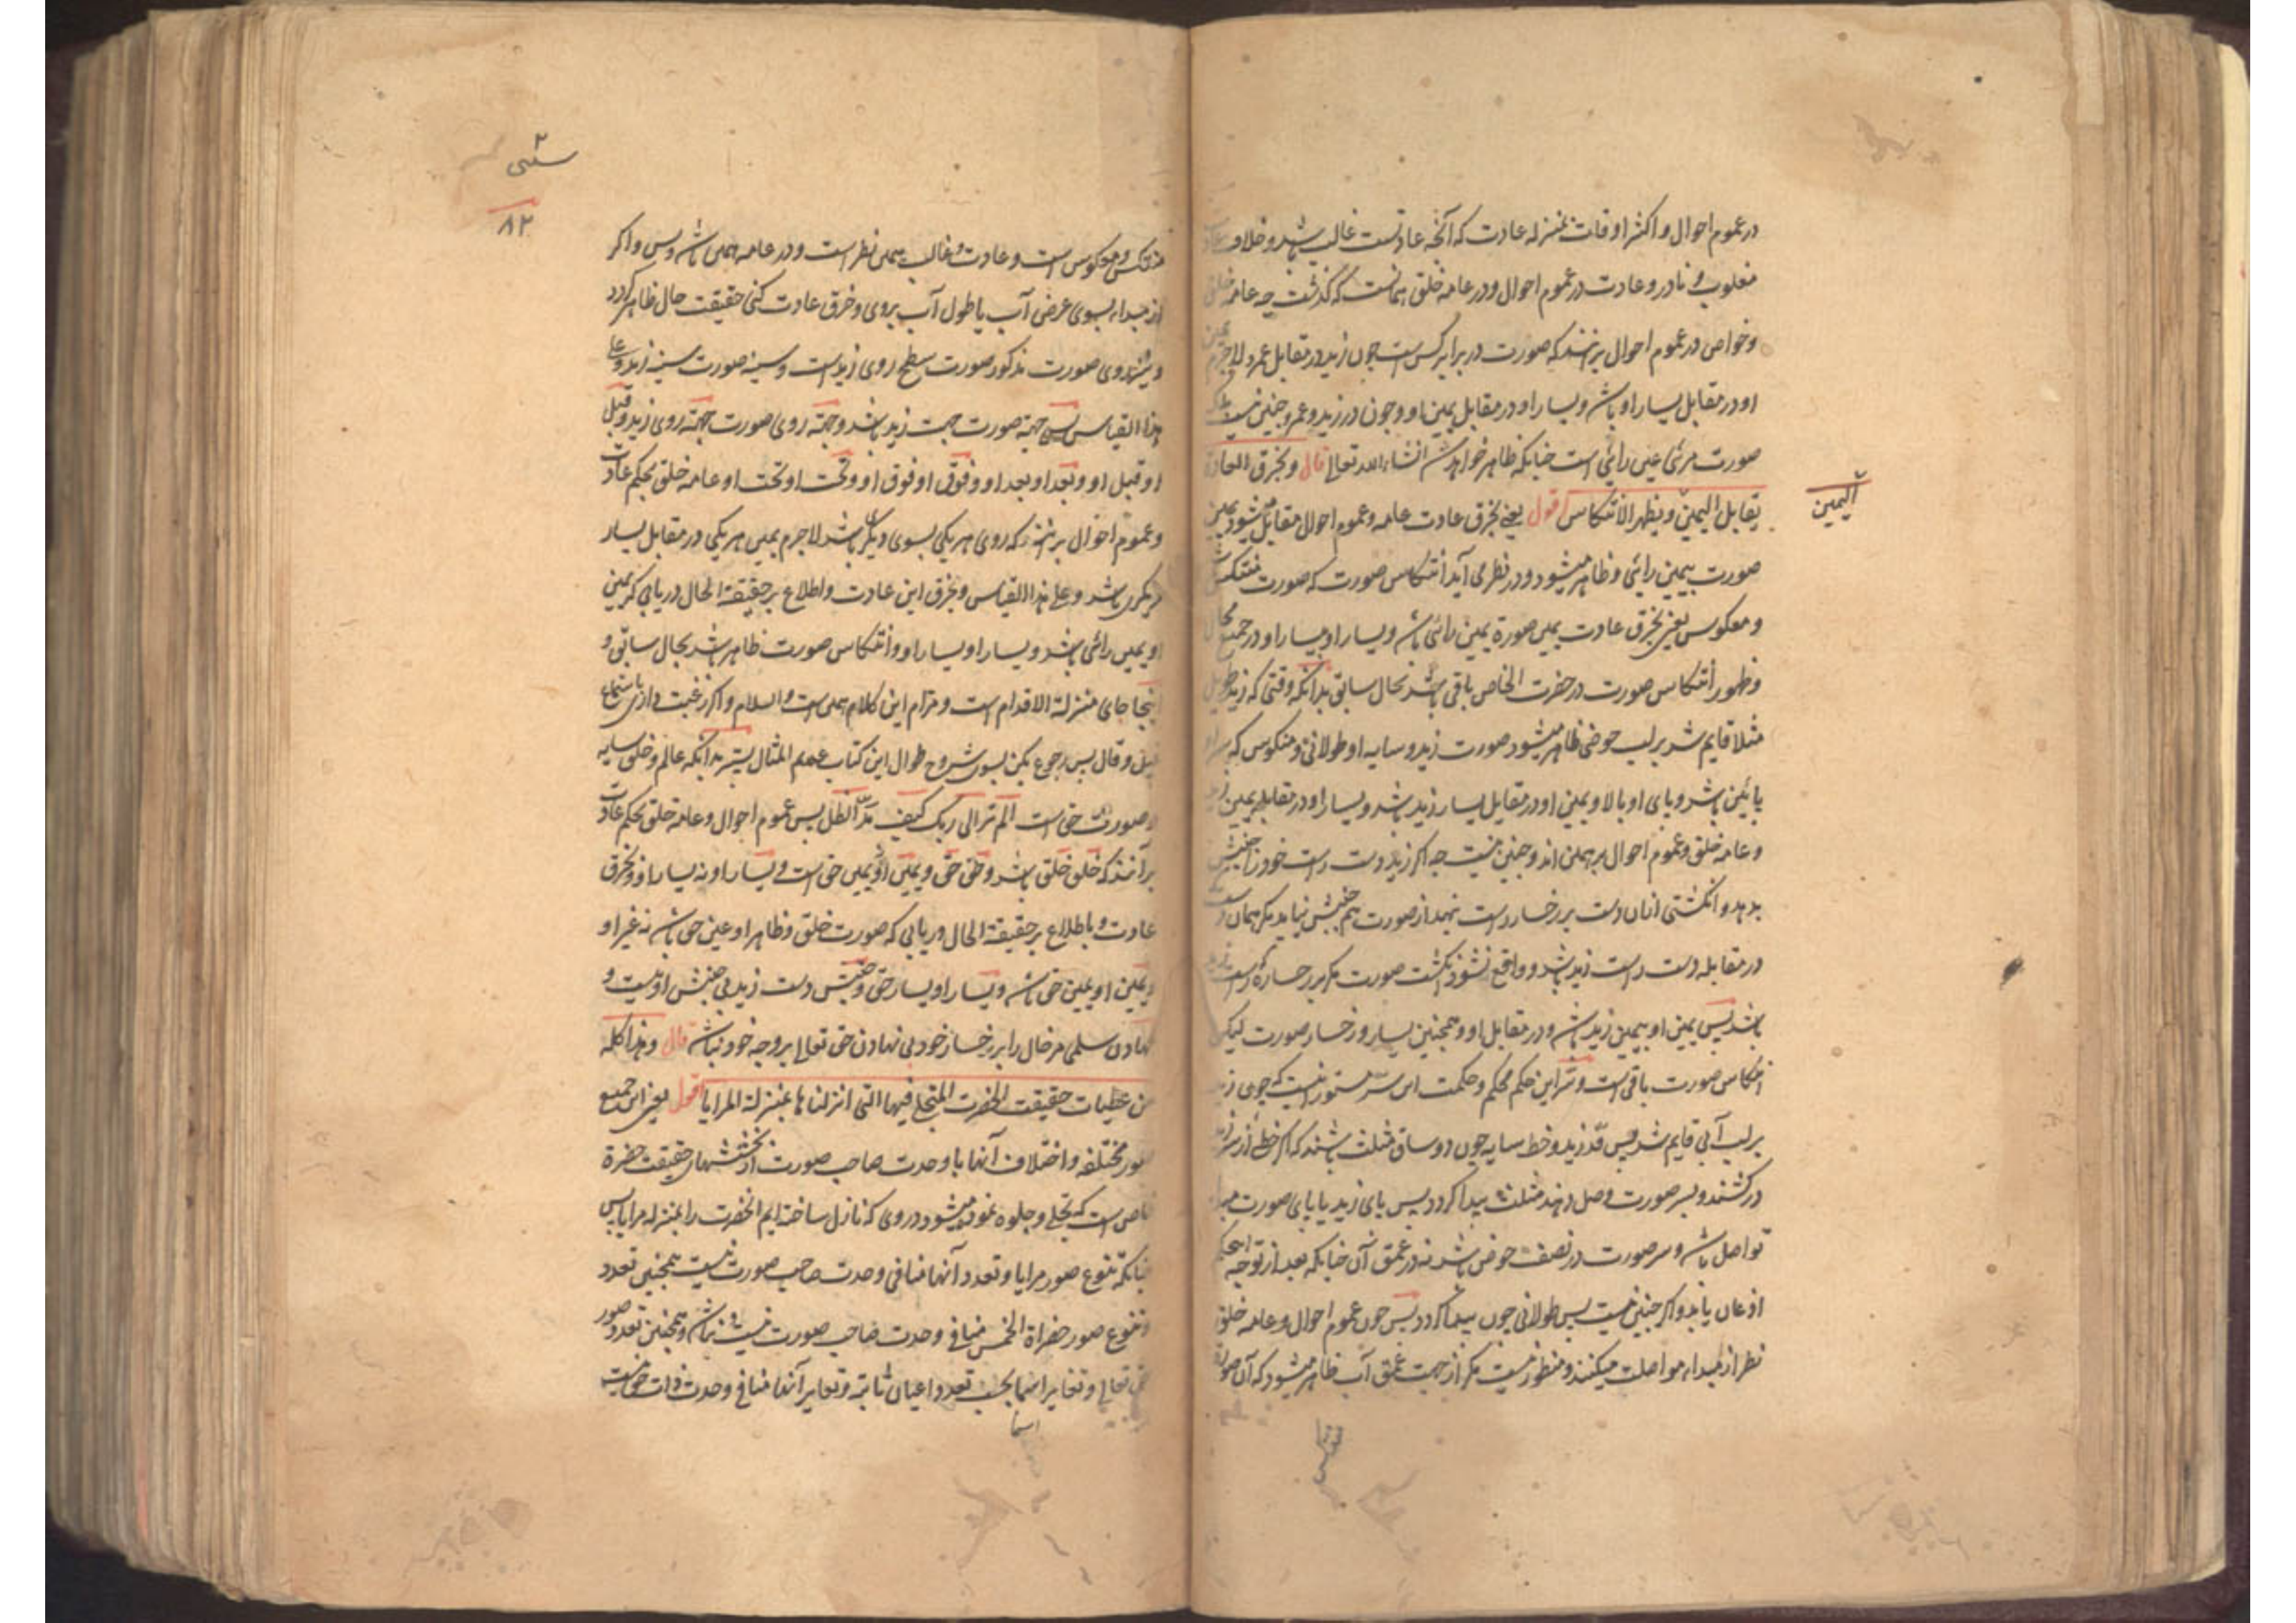 در عموم احوال و اکثر اوقات بمنزله عادت که آنچه عادتست غالب باشد و خلاف
مغلوب و نادر و عادت در عموم احوال و در عامه خلق همانست که گذشت چه عامه خلق
و خواص در عموم احوال برنهند که صورت در برابر کس است چون زید در مقابل عمرو لاجرم یمین
او در مقابل یسار او باشد و یسار او در مقابل یمین او و چون در زید و عمرو چنین نیست بلکه
صورت مرئی عین رائی است چنانکه ظاهر خواهد شد انشاء الله تعالی قال و بخرق العادة
یقابل الیمین و یظهر الانتکاس اقول یعنی بخرق عادت عامه و عموم احوال مقابل میشود یمین
الیمین
صورت بیمین رائی و ظاهر میشود و در نظر می آید انتکاس صورت که صورت منتکس
و معکوس یعنی بخرق عادت یمین صورة یمین رائی باشد و یسار او یسار او در جمیع محال
و ظهور انتکاس صورت در حضرت الخاص باقی باشد بحال سابق بدانکه وقتی که زید طویل
مثلا قایم شد بر لب حوضی ظاهر میشود صورت زید و سایه او طولانی و منکوس که سر او
پائین باشد و پای او بالا و یمین او در مقابل یسار زید باشد و یسار او در مقابل یمین زید
و عامه خلق و عموم احوال بر همین اند و چنین نیست چه اگر زید دست راست خود را جنبش
بدهد و انگشتی از آن دست بر رخسار راست نهد از صورت هم جنبش نیاید مگر همان دست که
در مقابله دست راست زید باشد و واقع نشود انگشت صورت مگر بر رخساره راست
باشد پس یمین او بیمین زید باشد و در مقابل او و همچنین یسار و رخسار صورت لیکن
انتکاس صورت باقی است و سر این حکم محکم و حکمت این سر مستور آنست که چون زید
بر لب آبی قایم شد پس قد زید و خط سایه چون دو ساق مثلث باشند که اگر خطی از سر زید
درکشند و بسر صورت وصل دهند مثلث پیدا گردد پس پای زید با پای صورت مبدا
تواصل باشد و سر صورت در نصف حوض باشد نه در عمق آن چنانکه بعد از توجه اینحکم
اذعان یابد و اگر چنین نیست پس طولانی چون پیدا گردد پس چون عموم احوال و عامه خلق
نظر از مبداء مواصلت میکنند و منظور نیست مگر از جهت عمق آب ظاهر میشود که آن صورة
۸۲
منتکس و معکوس است و عادت و غالب همین نظر است و در عامه همین باشد و بس و اگر
از مبداء بسوی عرض آب یا طول آب بروی و خرق عادت کنی حقیقت حال ظاهر گردد
صورت مذکور صورت سطح روی زید است و سینه صورت سینه زید و علی
هذا القیاس پس جهة صورت جهت زید باشد و جهة روی صورت جهة روی زید و قبل
او قبل او و بعد او بعد او و فوق او فوق او و تحت او تحت او و عامه خلق بحکم عادت
و عموم احوال برانند که روی هر یکی بسوی دیگری باشد لاجرم یمین هر یکی در مقابل یسار
دیگری باشد و علی هذا القیاس و بخرق این عادت و اطلاع بر حقیقة الحال دریابی که یمین
او یمین رائی باشد و یسار او یسار او و انتکاس صورت ظاهر باشد بحال سابق و
اینجا جای منزلة الاقدام است و مرام این کلام همین است و السلام و اگر رغبت داری باستماع
قیل و قال پس رجوع بکن بسوی شروح طوال این کتاب عدیم المثال بدانکه عالم و خلق سایه
و صورت حق است الم تر الی ربک کیف مد الظل پس عموم احوال و عامه خلق بحکم عادت
برآنند که خلق خلق باشد و حق حق و یمین او یمین حق است و یسار او نه یسار او و بخرق
عادت و باطلاع بر حقیقة الحال دریابی که صورت خلق و ظاهر او عین حق باشد نه غیر او
و یمین او یمین حق باشد و یسار او یسار حق و جنبش دست زید بی جنبش او نیست و
نهادن سلمی مر خال را بر رخسار خود بی نهادن حق تعالی بر وجه خود نباشد قال و هذا کله
من عطیات حقیقت الحضرت المتجلی فیها التی انزلناها بمنزلة المرایا اقول یعنی این جمیع
صور مختلفه و اختلاف آنها با وحدت صاحب صورت از بخششهای حقیقت حضرة
خاص است که تجلی و جلوه نموده میشود در وی که نازل ساخته ایم آنحضرت را بمنزله مرایا پس
چنانکه تنوع صور مرایا و تعدد آنها منافی وحدت صاحب صورت نیست همچنین تعدد
و تنوع صور حضراة الخمس منافی وحدت صاحب صورت نیست و نباشد و همچنین تعدد صور
حق تعالی و تغایر اسما بحسب تعدد اعیان ثابته و تغایر آنها منافی وحدت ذات حق نیست
اسما